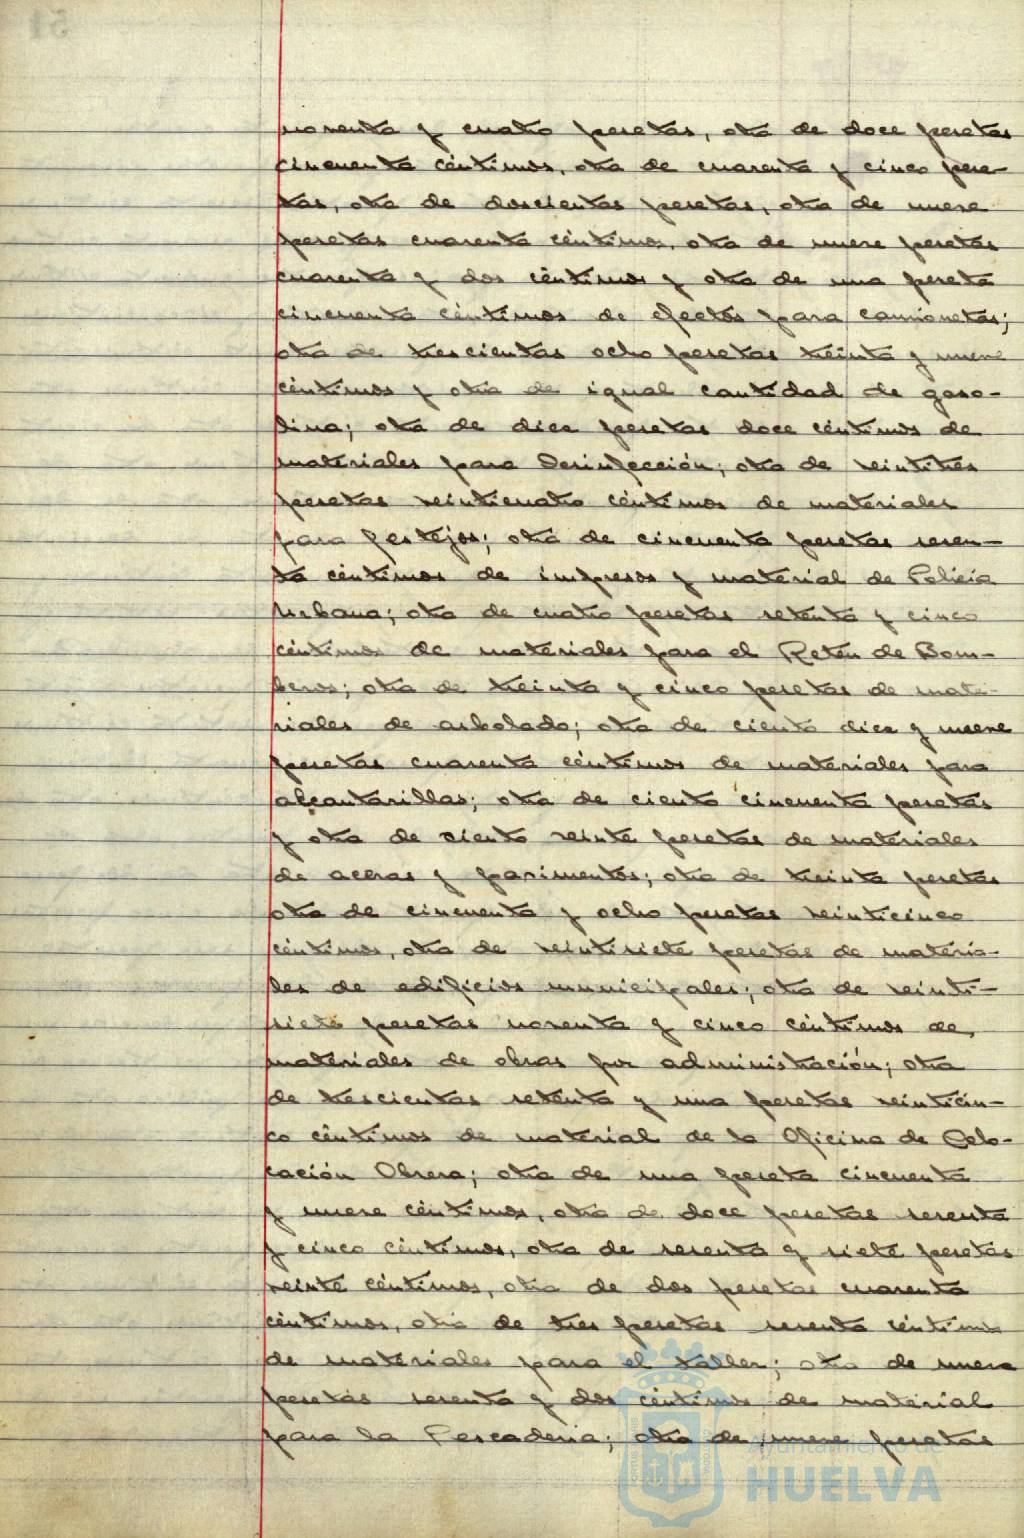 noventa y cuatro pesetas, otra de doce pesetas
cincuenta céntimos, otra de cuarenta y cinco pese-
tas, otra de doscientas pesetas, otra de nueve
pesetas cuarenta céntimos, otra de nueve pesetas
cuarenta y dos céntimos y otra de una peseta
cincuenta céntimos de efectos para camionetas;
otra de trescientas ocho pesetas treinta y nueve
céntimos y otra de igual cantidad de gaso-
lina; otra de diez pesetas doce céntimos de
materiales para Desinfección; otra de veintitres
pesetas veinticuatro céntimos de materiales
para festejos; otra de cincuenta pesetas seten-
ta céntimos de impresos y material de Policia
Urbana; otra de cuatro pesetas setenta y cinco
céntimos de materiales para el Retén de Bom-
beros; otra de treinta y cinco pesetas de mate-
riales de arbolado; otra de ciento diez y nueve
pesetas cuarenta céntimos de materiales para
alcantarillas; otra de ciento cincuenta pesetas
y otra de ciento veinte pesetas de materiales
de aceras y pavimentos; otra de treinta pesetas
otra de cincuenta y ocho pesetas veinticinco
céntimos, otra de veintisiete pesetas de materia-
les de edificios municipales; otra de veinti-
siete pesetas noventa y cinco céntimos de
materiales de obras por administración; otra
de trescientas setenta y una pesetas veinticin-
co céntimos de material de la Oficina de Colo-
cación Obrera; otra de una peseta cincuenta
y nueve céntimos, otra de doce pesetas sesenta
y cinco céntimos, otra de sesenta y siete pesetas
veinte céntimos, otra de dos pesetas cuarenta
céntimos, otra de tres pesetas sesenta céntimos
de materiales para el taller; otra de nueve
pesetas sesenta y dos céntimos de material
para la Pescaderia; otra de nueve pesetas
Ayuntamiento de
HUELVA